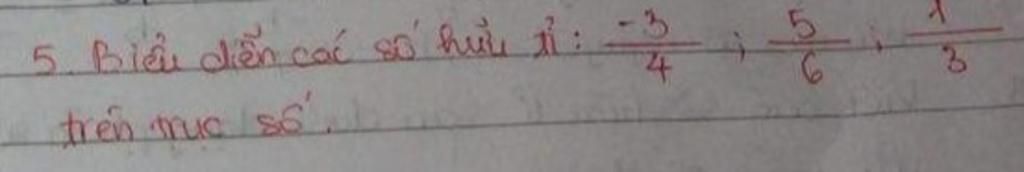 5. Biểu diễn các số hữu tỉ: -3/4 ; 5/6 ; 1/3
trên trục số.